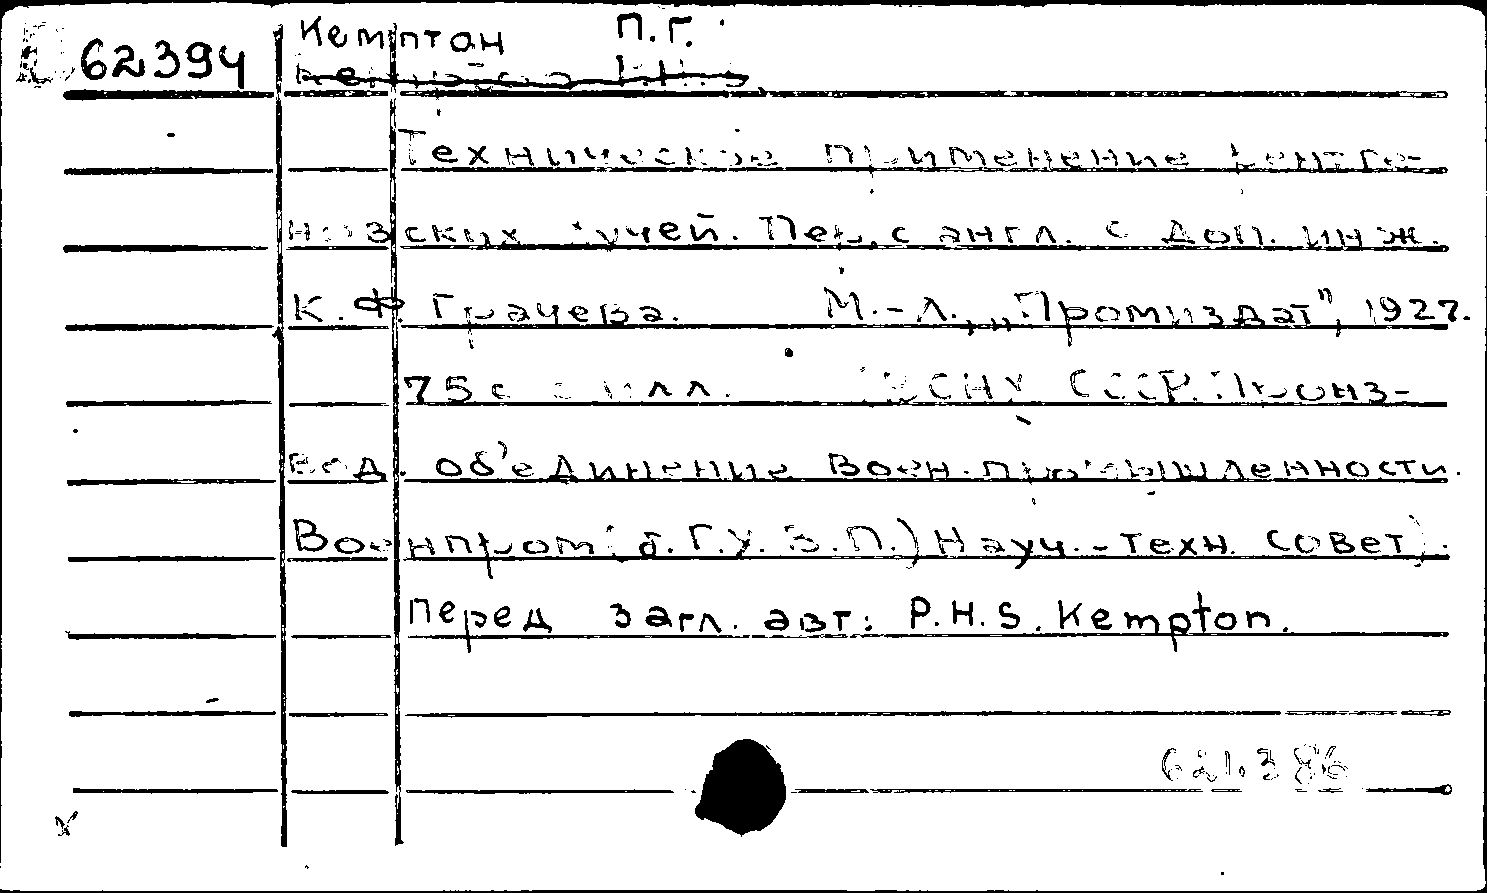 62394
Кемптан П.Г.
Техническое применение рентге-
новских лучей. Пер. с англ. с доп. инж.
К.Ф. Грачева. М.-Л., „Промиздат", 1927.
75 с. с илл. (ВСНХ СССР. Произ-
вод. об'единение Воен. промышленности.
Военпром (б. Г.У.В.П.) Науч.-техн. совет).
Перед загл. авт: P.H.S. Kempton.
621.386